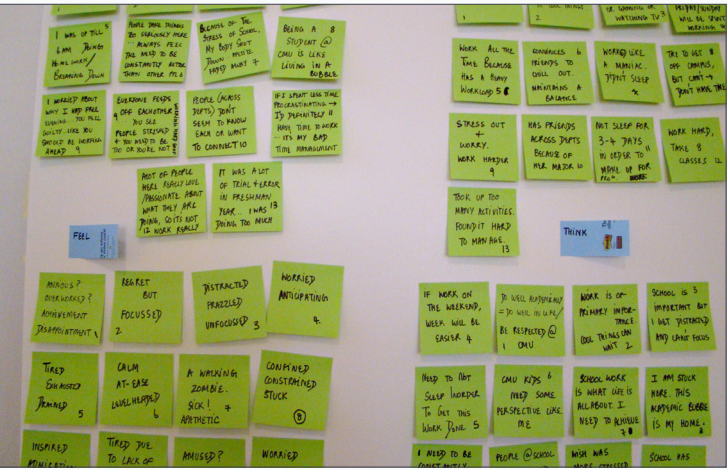 I WAS UP TILL 5
6 AM DOING
HOMEWORK/
BREAKING DOWN
PEOPLE TAKE THINGS
SO SERIOUSLY HERE
ALWAYS FEEL
THE NEED TO BE
CONSTANTLY BETTER
THAN OTHER PPL 6
BECAUSE OF THE
STRESS OF SCHOOL,
MY BODY SHUT
DOWN
7
BEING A 8
STUDENT @
CMU IS LIKE
LIVING IN A
BUBBLE
I WORRIED ABOUT
WHY I HAD FREE
YOU FEEL
GUILTY. LIKE YOU
SHOULD BE WORKING
AHEAD 9
EVERYONE FEEDS
OFF EACHOTHER
9 YOU SEE
PEOPLE STRESSED
& YOU NEED TO BE
TOO OR YOU'RE NOT
PEOPLE (ACROSS
DEPTS) DON'T
SEEM TO KNOW
EACH OR WANT
TO CONNECT 10
IF I SPENT LESS TIME
PROCRASTINATING →
I'D DEFINITELY 11
HAVE TIME TO WORK
- IT'S MY BAD
TIME MANAGEMENT
ALOT OF PEOPLE
HERE REALLY LOVE
/PASSIONATE ABOUT
WHAT THEY ARE
DOING, SO ITS NOT
12 WORK REALLY
IT WAS A LOT
OF TRIAL & ERROR
IN FRESHMAN
YEAR... I WAS 13
DOING TOO MUCH
FEEL
ANXIOUS?
OVERWORKED?
ACHIEVEMENT
DISAPPOINTMENT 1
REGRET
BUT
FOCUSSED
2
DISTRACTED
FRAZZLED
UNFOCUSSED 3
WORRIED
ANTICIPATING
4
TIRED
EXHAUSTED
DRAINED 5
CALM
AT-EASE
LEVELHEADED
6
A WALKING
ZOMBIE.
SICK! 7
APATHETIC
CONFINED
CONSTRAINED
STUCK
8
INSPIRED
TIRED DUE
TO LACK OF
AMUSED?
WORRIED
1
2
OR
WATCHING TV 3
WILL BE SPENT
WORK ALL THE
TIME BECAUSE
HAS A HEAVY
WORKLOAD 5
CONVINCES 6
FRIENDS TO
CHILL OUT.
MAINTAINS A
BALANCE
WORKED LIKE
A MANIAC.
DIDN'T SLEEP
TRY TO GET 8
OFF CAMPUS,
BUT CAN'T →
DON'T HAVE TIME
STRESS OUT
+
WORRY.
WORK HARDER
9
HAS FRIENDS
ACROSS DEPTS
BECAUSE OF
HER MAJOR 10
NOT SLEEP FOR
3-4 DAYS
IN ORDER TO 11
MAKE UP FOR
WORK HARD,
TAKE 8
CLASSES 12
TOOK UP TOO
MANY ACTIVITIES.
FOUND IT HARD
TO MANAGE.
13
THINK
IF WORK ON
THE WEEKEND,
WEEK WILL BE
EASIER 4
DO WELL ACADEMICALLY
= DO WELL IN LIFE/
BE RESPECTED @
1 CMU
WORK IS OF
PRIMARY IMPOR-
TANCE.
COOL THINGS CAN
WAIT 2
SCHOOL IS 3
IMPORTANT BUT
I GET DISTRACTED
AND CAN'T FOCUS
NEED TO NOT
SLEEP INORDER
TO GET THIS
WORK DONE 5
CMU KIDS 6
NEED SOME
PERSPECTIVE LIKE
ME
SCHOOL WORK
IS WHAT LIFE IS
ALL ABOUT. I
NEED TO ACHIEVE
7
I AM STUCK
HERE. THIS
ACADEMIC BUBBLE
IS MY HOME. 8
I NEED TO BE
CONSTANTLY
PEOPLE @ SCHOOL
WISH WAS
MORE STRESSED
SCHOOL HAS